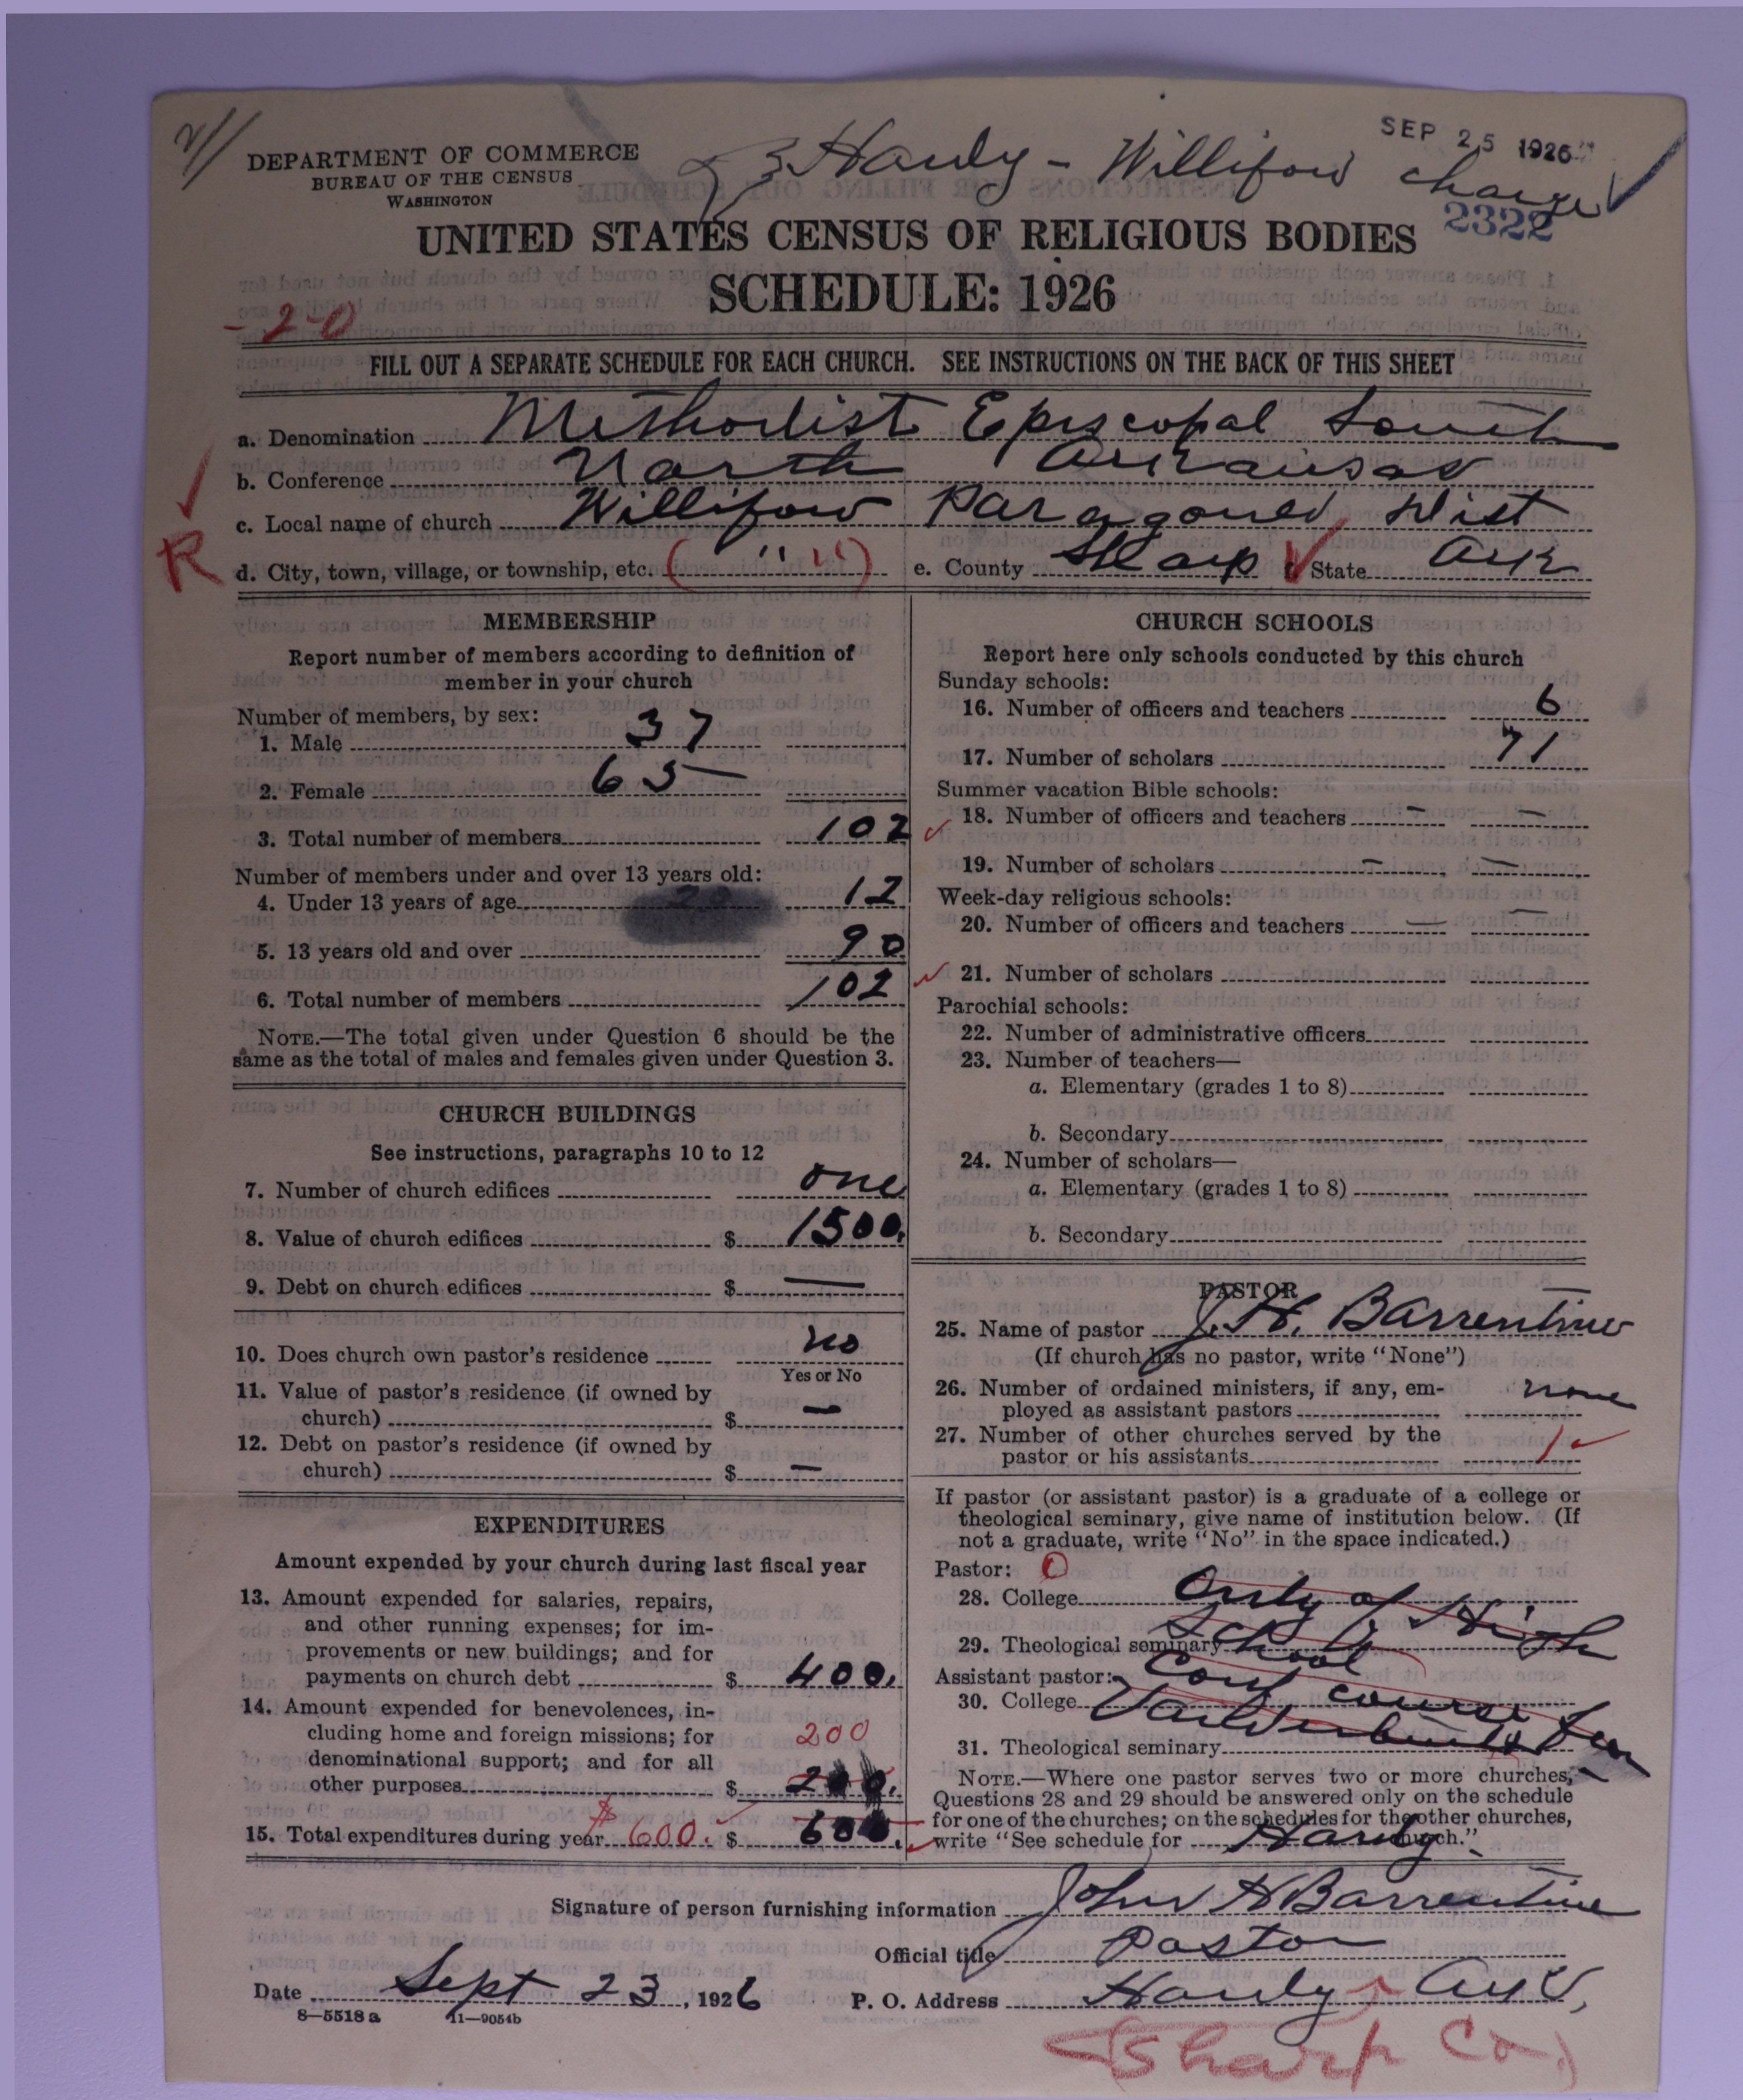 SEP 25 1926
Hardy - Williford charge
DEPARTMENT OF COMMERCE
BUREAU OF THE CENSUS
WASHINGTON
2322
UNITED STATES CENSUS OF RELIGIOUS BODIES
SCHEDULE: 1926
-2-0
FILL OUT A SEPARATE SCHEDULE FOR EACH CHURCH. SEE INSTRUCTIONS ON THE BACK OF THIS SHEET
a. Denomination Methodist Episcopal South
b. Conference North Arkansas
c. Local name of church Williford Paragould Dist
R d. City, town, village, or township, etc. ( " " ) e. County Sharp State Ark
MEMBERSHIP
Report number of members according to definition of
member in your church
Number of members, by sex:
1. Male 37
2. Female 65
3. Total number of members 102
Number of members under and over 13 years old:
4. Under 13 years of age 12
5. 13 years old and over 90
6. Total number of members 102
NOTE.—The total given under Question 6 should be the
same as the total of males and females given under Question 3.
CHURCH BUILDINGS
See instructions, paragraphs 10 to 12
7. Number of church edifices one
8. Value of church edifices $ 1500.
9. Debt on church edifices $ —
10. Does church own pastor's residence no
Yes or No
11. Value of pastor's residence (if owned by
church) $ —
12. Debt on pastor's residence (if owned by
church) $ —
EXPENDITURES
Amount expended by your church during last fiscal year
13. Amount expended for salaries, repairs,
and other running expenses; for im-
provements or new buildings; and for
payments on church debt $ 400.
14. Amount expended for benevolences, in-
cluding home and foreign missions; for 200
denominational support; and for all
other purposes $ 200.
15. Total expenditures during year $ 600. $ 600.
CHURCH SCHOOLS
Report here only schools conducted by this church
Sunday schools:
16. Number of officers and teachers 6
17. Number of scholars 71
Summer vacation Bible schools:
18. Number of officers and teachers — —
19. Number of scholars — —
Week-day religious schools:
20. Number of officers and teachers — —
21. Number of scholars
Parochial schools:
22. Number of administrative officers
23. Number of teachers—
a. Elementary (grades 1 to 8)
b. Secondary
24. Number of scholars—
a. Elementary (grades 1 to 8)
b. Secondary
PASTOR
25. Name of pastor J. H. Barrentine
(If church has no pastor, write "None")
26. Number of ordained ministers, if any, em- none
ployed as assistant pastors
27. Number of other churches served by the
pastor or his assistants 1
If pastor (or assistant pastor) is a graduate of a college or
theological seminary, give name of institution below. (If
not a graduate, write "No" in the space indicated.)
Pastor: O
28. College only of High
29. Theological seminary School
Assistant pastor: Conf course
30. College Vanderbilt
31. Theological seminary
NOTE.—Where one pastor serves two or more churches,
Questions 28 and 29 should be answered only on the schedule
for one of the churches; on the schedules for the other churches,
write "See schedule for Hardy church."
Signature of person furnishing information John H Barrentine
Official title Pastor
Date Sept 23, 1926 P. O. Address Hardy Ark,
8—5518 a 11—9054b
(Sharp Co.)